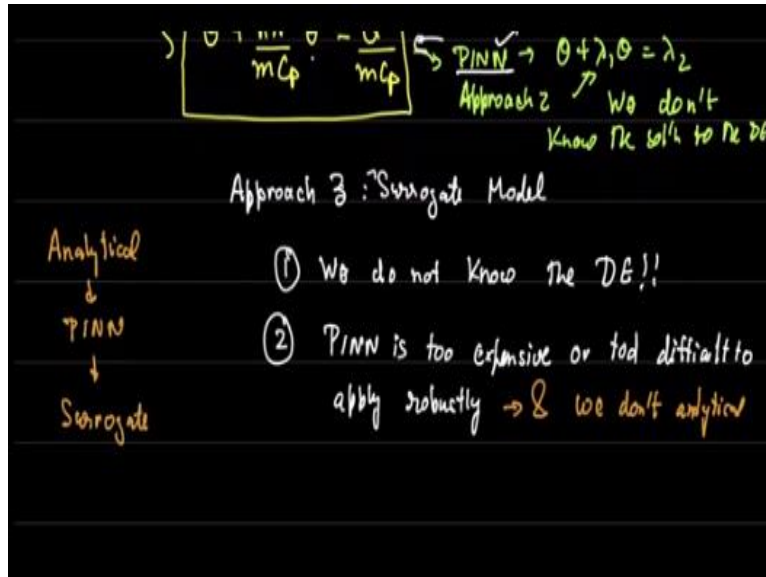 θ + hA/mCp θ = Q/mCp
PINN → θ + λ₁θ = λ₂
Approach 2 ↗ We don't
Know the sol'n to the DE
Approach 3 : Surrogate Model
Analytical
↓
PINN
↓
Surrogate
① We do not Know the DE!!
② PINN is too expensive or too difficult to
apply robustly → & we don't analytical